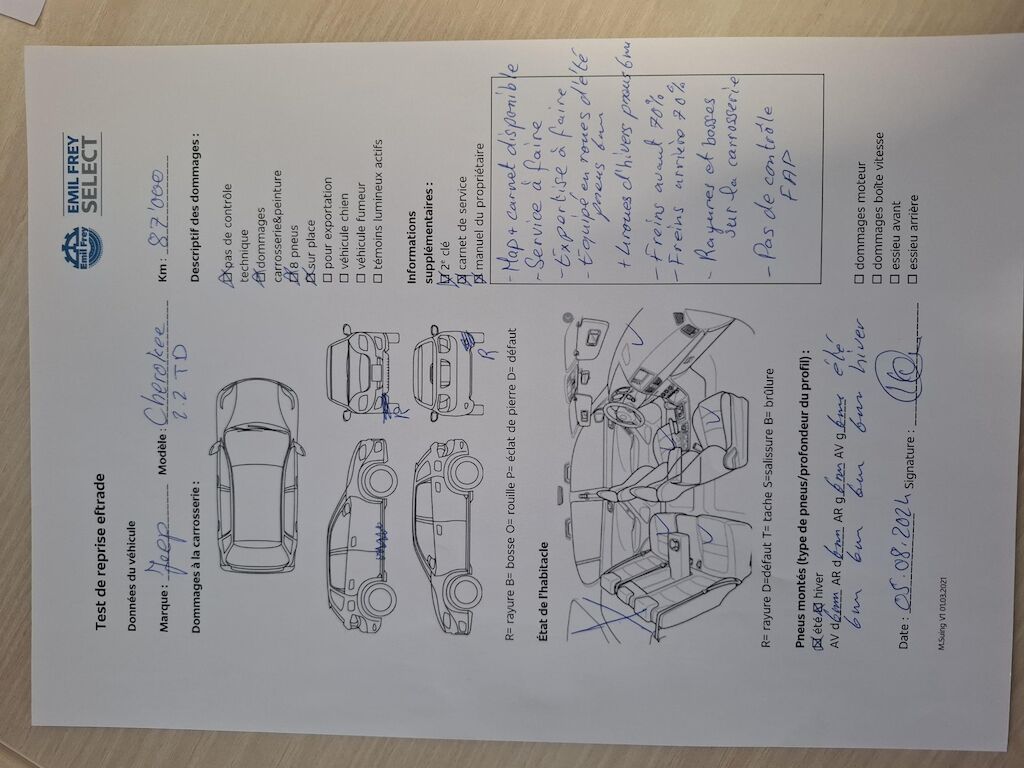 Test de reprise eftrade
Emil Frey
EMIL FREY
SELECT
Données du véhicule
Marque : Jeep Modèle : Cherokee Km : 87'000
2.2 TD
Dommages à la carrosserie :
Descriptif des dommages :
pas de contrôle
technique
dommages
carrosserie&peinture
8 pneus
sur place
pour exportation
véhicule chien
véhicule fumeur
témoins lumineux actifs
R
R
Informations
supplémentaires :
2° clé
carnet de service
manuel du propriétaire
R= rayure B= bosse O= rouille P= éclat de pierre D= défaut
État de l'habitacle
- Map + carnet disponible
- Service à faire
- Expertise à faire
- Equipé en roues d'été
pneus 6mm
+ 4 roues d'hivers pneus 6mm
- Freins avant 70%
- Freins arrière 70%
- Rayures et bosses
sur la carrosserie
- Pas de contrôle
FAP
R= rayure D=défaut T= tache S=salissure B= brûlure
Pneus montés (type de pneus/profondeur du profil) :
été hiver
AV d 6mm AR d 6mm AR g 6mm AV g 6mm été
6mm 6mm 6mm 6mm hiver
dommages moteur
dommages boîte vitesse
essieu avant
essieu arrière
Date : 05.08.2024 Signature :
M.Suing V1 01.03.2021